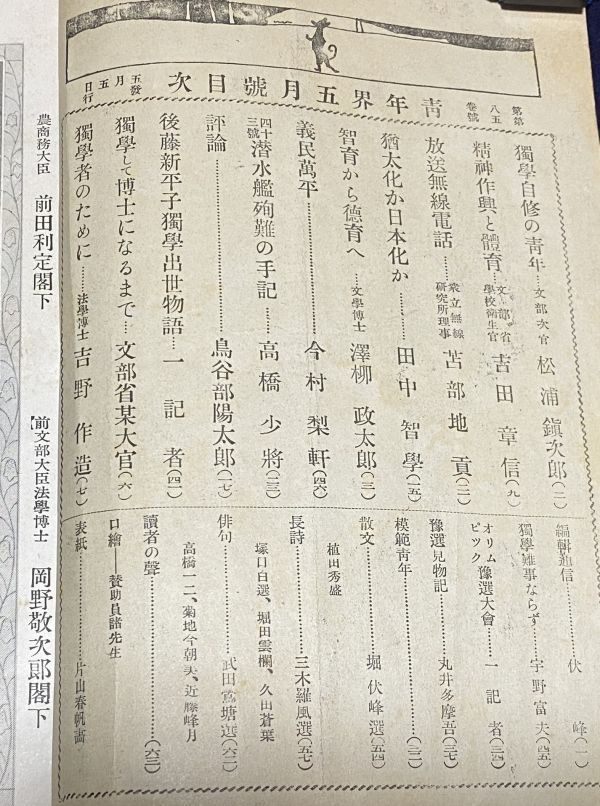 青年界五月號目次
第五卷
第八號
五月五日發行
獨學自修の靑年…文部次官 松浦鎭次郎(二)
精神作興と體育…文部省學校衞生官 吉田章信(九)
放送無線電話……衆立無線研究所理事 苫部地貢(二一)
猶太化か日本化か………田中智學(一五)
智育から德育へ…文學博士 澤柳政太郎(三)
義民萬平………今村梨軒(四六)
四十三號潜水艦殉難の手記……高橋少將(二三)
評論………鳥谷部陽太郎(一七)
後藤新平子獨學出世物語…一記者(四一)
獨學して博士になるまで…文部省某大官(六)
獨學者のために……法學博士 吉野作造(七)
編輯通信………伏峰(一)
獨學難事ならず…宇野富夫(四五)
オリムピツク豫選大會…一記者(三四)
豫選見物記……丸井多摩吾(三七)
模範靑年………(三二)
散文………堀伏峰選(五四)
植田秀盛
長詩………三木羅風選(五七)
塚口白選、堀田雲欄、久田蒼葉
俳句………武田鶯塘選(六二)
高橋一二、菊地今朝夫、近藤峰月
讀者の聲………(六三)
口繪――賛助員諸先生
表紙………片山春帆畵
農商務大臣 前田利定閣下
【前文部大臣法學博士 岡野敬次郎閣下